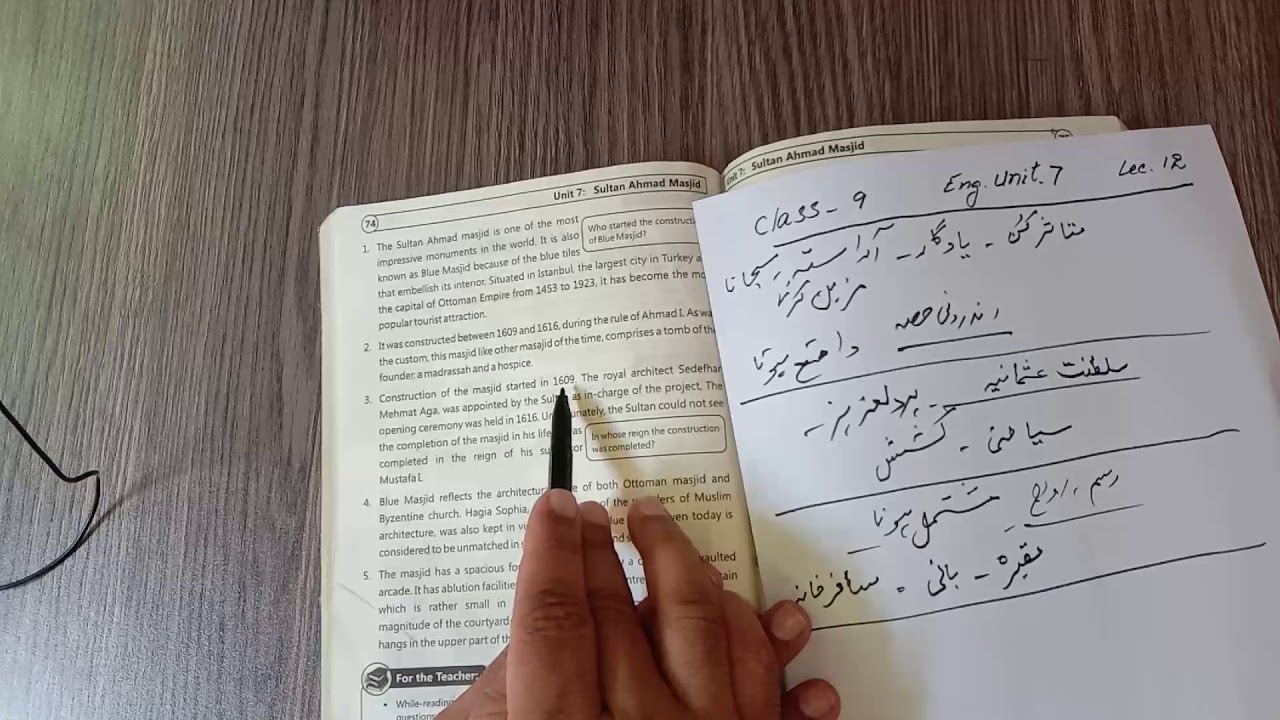 74
Unit 7: Sultan Ahmad Masjid
1. The Sultan Ahmad masjid is one of the most
impressive monuments in the world. It is also
known as Blue Masjid because of the blue tiles
that embellish its interior. Situated in Istanbul, the largest city in Turkey
the capital of Ottoman Empire from 1453 to 1923, it has become the
popular tourist attraction.
Who started the
of Blue Masjid?
2. It was constructed between 1609 and 1616, during the rule of Ahmad I. As
the custom, this masjid like other masajid of the time, comprises a tomb of the
founder, a madrassah and a hospice.
3. Construction of the masjid started in 1609. The royal architect Sedefhar
Mehmat Aga, was appointed by the as in-charge of the project. The
opening ceremony was held in 1616. the Sultan could not see
the completion of the masjid in his
completed in the reign of his
Mustafa I.
In whose reign the construction
was completed?
4. Blue Masjid reflects the of both Ottoman masjid and
Byzentine church. Hagia Sophia, of the of Muslim
architecture, was also kept in today is
considered to be unmatched in
5. The masjid has a spacious
arcade. It has ablution
which is rather small in
magnitude of the courtyard
hangs in the upper part of
For the Teacher:
• While-reading
questions
Unit 7: Sultan Ahmad Masjid
Class - 9 Eng. Unit. 7 Lec. 12
متاثر کن - یادگار - آراستہ، سجانا
مزین کرنا
اندرونی حصہ واقع ہونا
سلطنت عثمانیہ ہردلعزیز -
سیاحتی - کشش
رسم، رواج - مشتمل ہونا
مقبرہ - بانی - مسافر خانہ